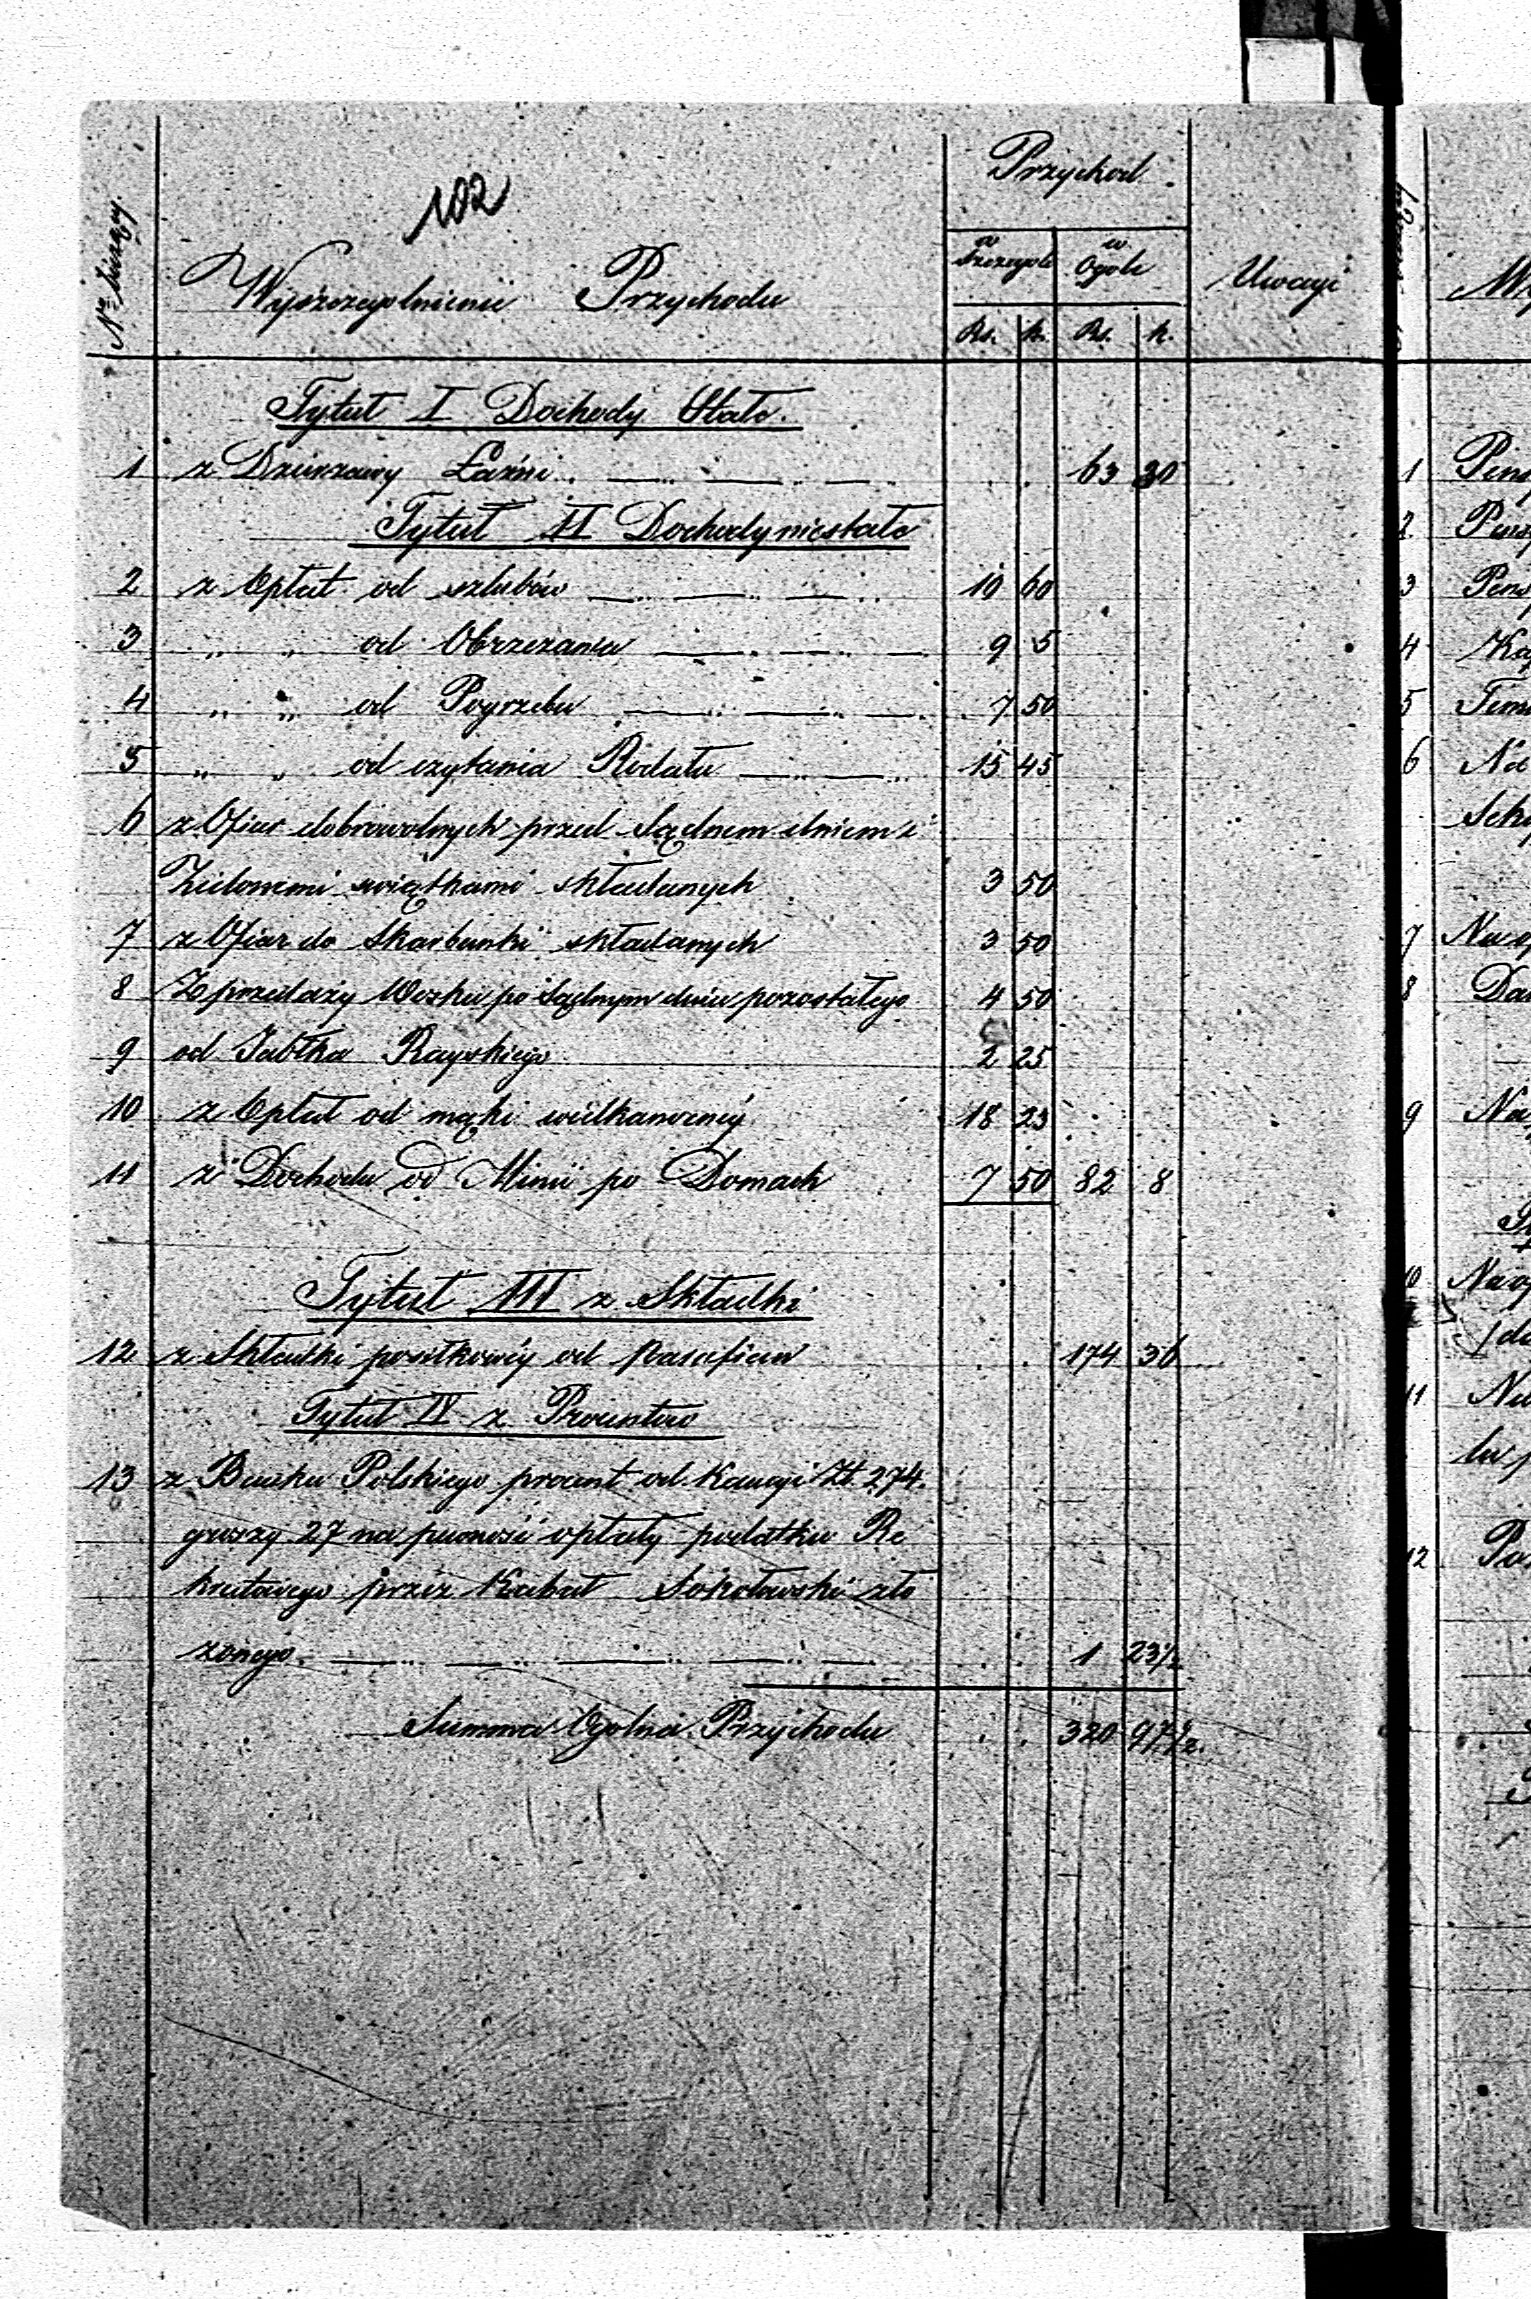 102
Nr bieżący
Wyszczegolnienie Przychodu
Przychod
w szczegole
w Ogole
Uwagi
Rs. k. Rs. k.
Tytuł I Dochody Stałe.
1 z Dzierzawy Łaźni 63 30
Tytuł II Dochody niestałe
2 z Opłat od szlubów 10 60
3 " " od Obrzezania 9 5
4 " " od Pogrzebu 7 50
5 " " od czytania Rodału 15 45
6 z Ofiar dobrowolnych przed Sądnem dniem i
Zielonemi swiątkami składanych 3 50
7 z Ofiar do Skarbonki składanych 3 50
8 Z przedaży Wosku po Sądnym dniu pozostałego 4 50
9 od Jabłka Rayskiego 2 25
10 z Opłat od mąki wielkanocnéy 18 23
11 z Dochodu od po Domach 7 50 82 8
Tytuł III z Składki
12 z Składki posiłkowéy od Parafian 174 36
Tytuł IV z Procentow
13 z Banku Polskiego procent od Kaucyi Zł. 274.
groszy 27 na pewność opłaty podatku Re
krutowego przez Kahał Sokołowski zło
zonego. 1 23½
Summa Ogolna Przychodu 320 97½.
1
2
3
4
5
6
7
8
9
10
11
12